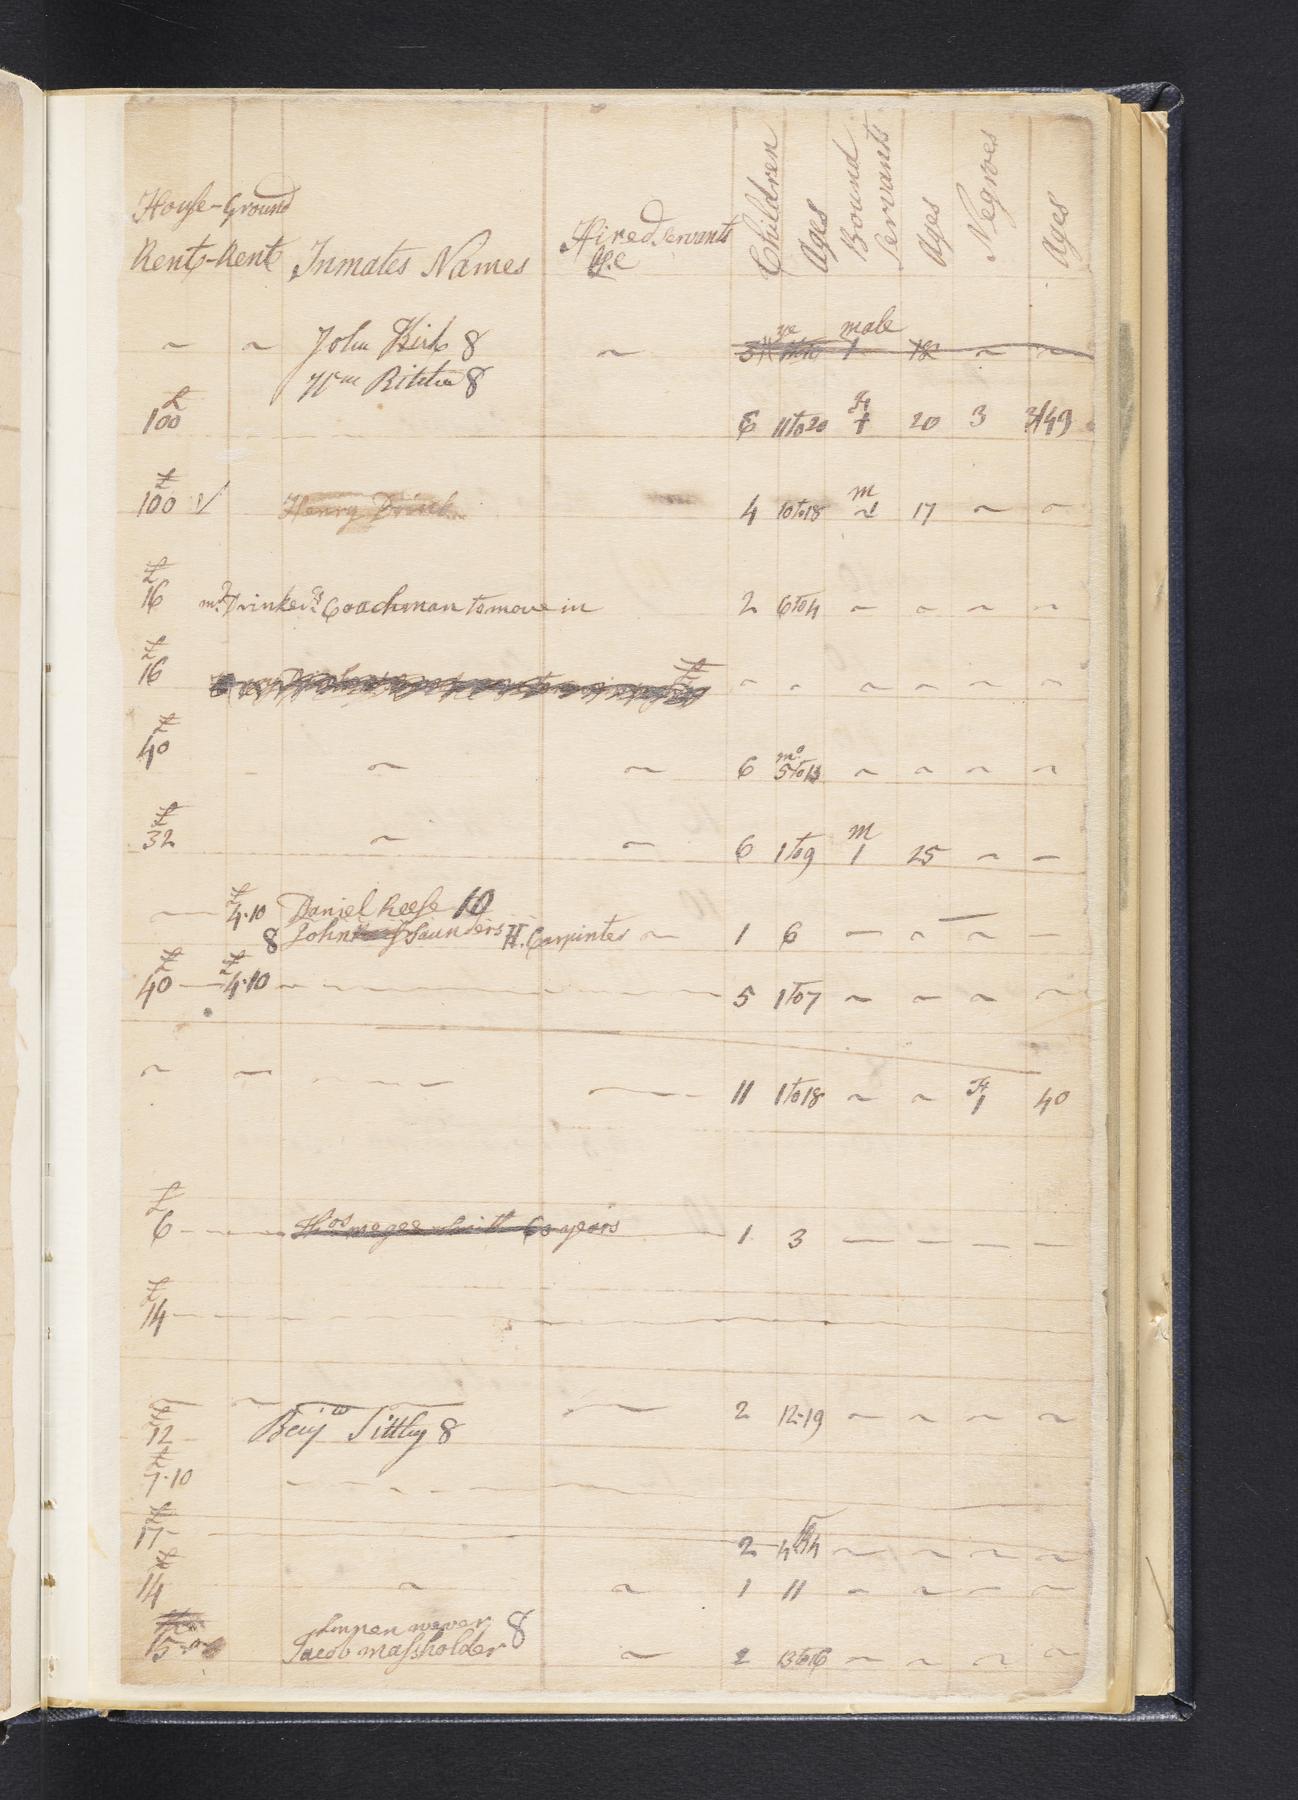 House-Ground
Rent-Rent Inmates Names Hired Servants Age Children Ages Bound Servants Ages Negroes Ages
~ ~ John Kirk 8 ~ male 1 18 ~ ~
Wm 8
£
100 6 11 to 20 F 1 20 3
£
100 √ Henry Drink 4 10 to 18 m 1 17 ~ ~
£
16 mr Drinkers Coachman to move in 2 6 to 4 ~ ~ ~ ~
£
16 ~ ~ ~ ~ ~ ~
£
40 ~ ~ 6 mo 5 to 13 ~ ~ ~ ~
£
32 ~ ~ 6 1 to 9 m 1 25 ~ ~
— £ 4·10 Daniel Reese 10
8 John Saunders H. Carpinter ~ 1 6 — ~ ~ —
£ £
40 — 4·10 5 1 to 7 ~ ~ ~ ~
~ — — — 11 1 to 18 ~ ~ F 1 40
£
6 Thos megee 60 years 1 3 — — — —
£
14
~ ~ — 2 12-19 ~ ~ ~ ~
£
12 Benjn 8
£
7·10
£
17 2 4 ~ ~ ~ ~
£
14 ~ ~ 1 11 ~ ~ ~ ~
Linnen wever 8
15 Jacob massholder ~ 2 13 to 16 ~ ~ ~ ~